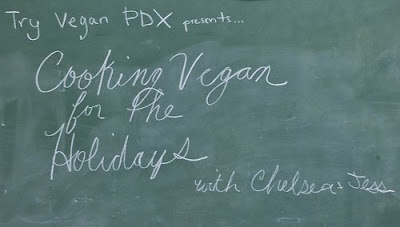 Try Vegan PDX presents...
Cooking Vegan
for the
Holidays
with Chelsea + Jess